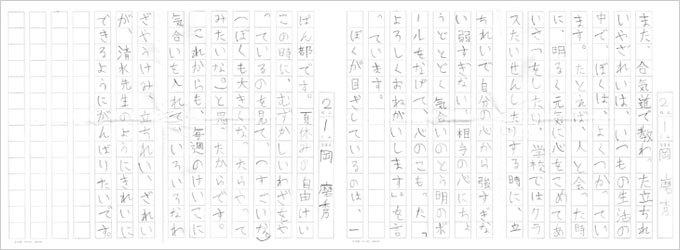 2-1 岡 磨秀
また、合気道で教わった立ちれ
いやざれいは、いつもの生活の
中で、ぼくは、よくつかってい
ます。たとえば、人と会った時
に、明るく元気に心をこめてあ
いさつをしたり、学校ではクラ
スたいせんしたりする時に、立
ちれいで自分の心から強すぎな
い弱すぎない、相手の心にちょ
うどとどく気合いのとう明のボ
ールをなげて、心のこもった「
よろしくおねがいします」を言
っています。
ぼくが目ざしているのは、一
2-1 岡 磨秀
ぱん都です。夏休みの自由けい
この時に、むずかしいわざをや
っているのを見て、（すごいな）
（ぼくも大きくなったらやって
みたいな。）と思ったからです。
これからも、毎週のけいこに
気合いを入れて、いろいろなわ
ざやうけみ、立ちれい、ざれい
が、清水先生のようにきれいに
できるようにがんばりたいです。